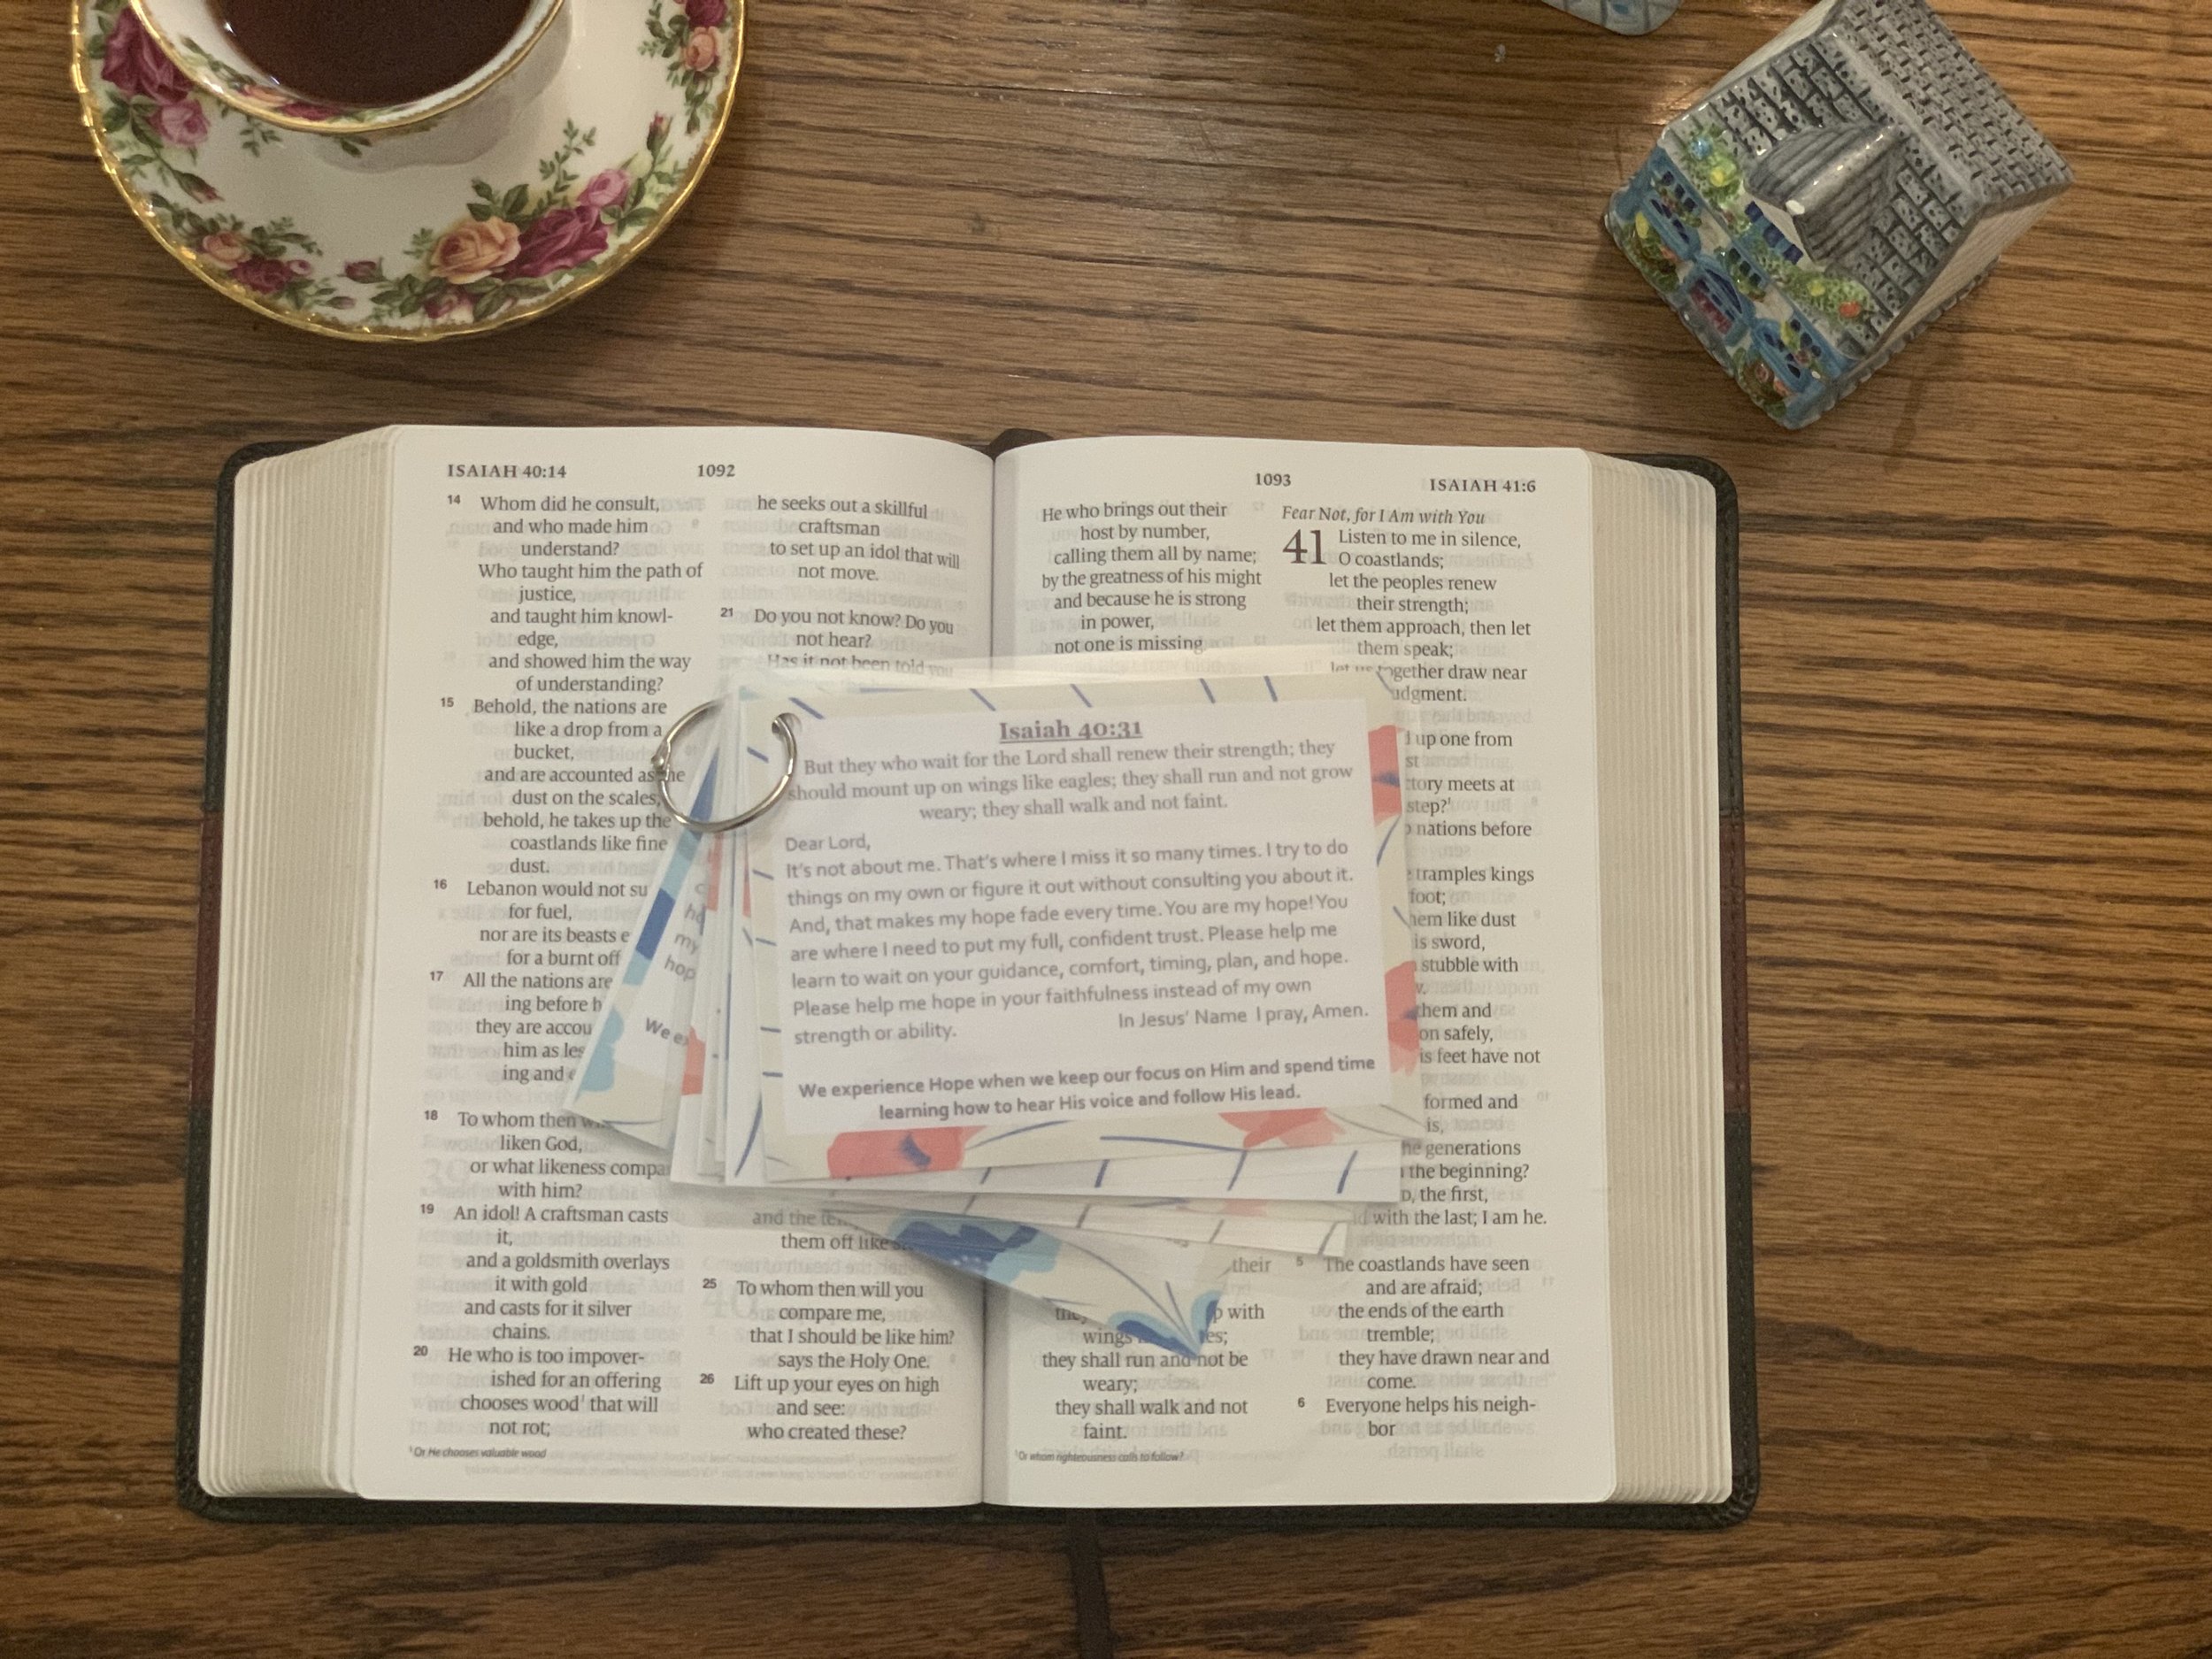 ISAIAH 40:14
1092
14 Whom did he consult,
and who made him
understand?
Who taught him the path of
justice,
and taught him knowl-
edge,
and showed him the way
of understanding?
15 Behold, the nations are
like a drop from a
bucket,
and are accounted as the
dust on the scales;
behold, he takes up the
coastlands like fine
dust.
16 Lebanon would not su
for fuel,
nor are its beasts e
for a burnt off
17 All the nations are
ing before h
they are accou
him as les
ing and e
18 To whom then
liken God,
or what likeness compa
with him?
19 An idol! A craftsman casts
it,
and a goldsmith overlays
it with gold
and casts for it silver
chains.
20 He who is too impover-
ished for an offering
chooses wood¹ that will
not rot;
¹Or He chooses valuable wood
he seeks out a skillful
craftsman
to set up an idol that will
not move.
21 Do you not know? Do you
not hear?
Has it not been told you
and the te
them off like
25 To whom then will you
compare me,
that I should be like him?
says the Holy One.
26 Lift up your eyes on high
and see:
who created these?
1093
ISAIAH 41:6
He who brings out their
host by number,
calling them all by name;
by the greatness of his might
and because he is strong
in power,
not one is missing
their
with
wings
they shall run and not be
weary;
they shall walk and not
faint.
¹Or whom righteousness calls to follow?
Fear Not, for I Am with You
41 Listen to me in silence,
O coastlands;
let the peoples renew
their strength;
let them approach, then let
them speak;
let us together draw near
udgment.
up one from
st
tory meets at
step?¹
nations before
tramples kings
foot;
em like dust
is sword,
stubble with
hem and
on safely,
is feet have not
formed and
is,
he generations
the beginning?
, the first,
with the last; I am he.
5 The coastlands have seen
and are afraid;
the ends of the earth
tremble;
they have drawn near and
come.
6 Everyone helps his neigh-
bor
Isaiah 40:31
But they who wait for the Lord shall renew their strength; they
should mount up on wings like eagles; they shall run and not grow
weary; they shall walk and not faint.
Dear Lord,
It's not about me. That's where I miss it so many times. I try to do
things on my own or figure it out without consulting you about it.
And, that makes my hope fade every time. You are my hope! You
are where I need to put my full, confident trust. Please help me
learn to wait on your guidance, comfort, timing, plan, and hope.
Please help me hope in your faithfulness instead of my own
strength or ability. In Jesus' Name I pray, Amen.
We experience Hope when we keep our focus on Him and spend time
learning how to hear His voice and follow His lead.
my
hop
We ex